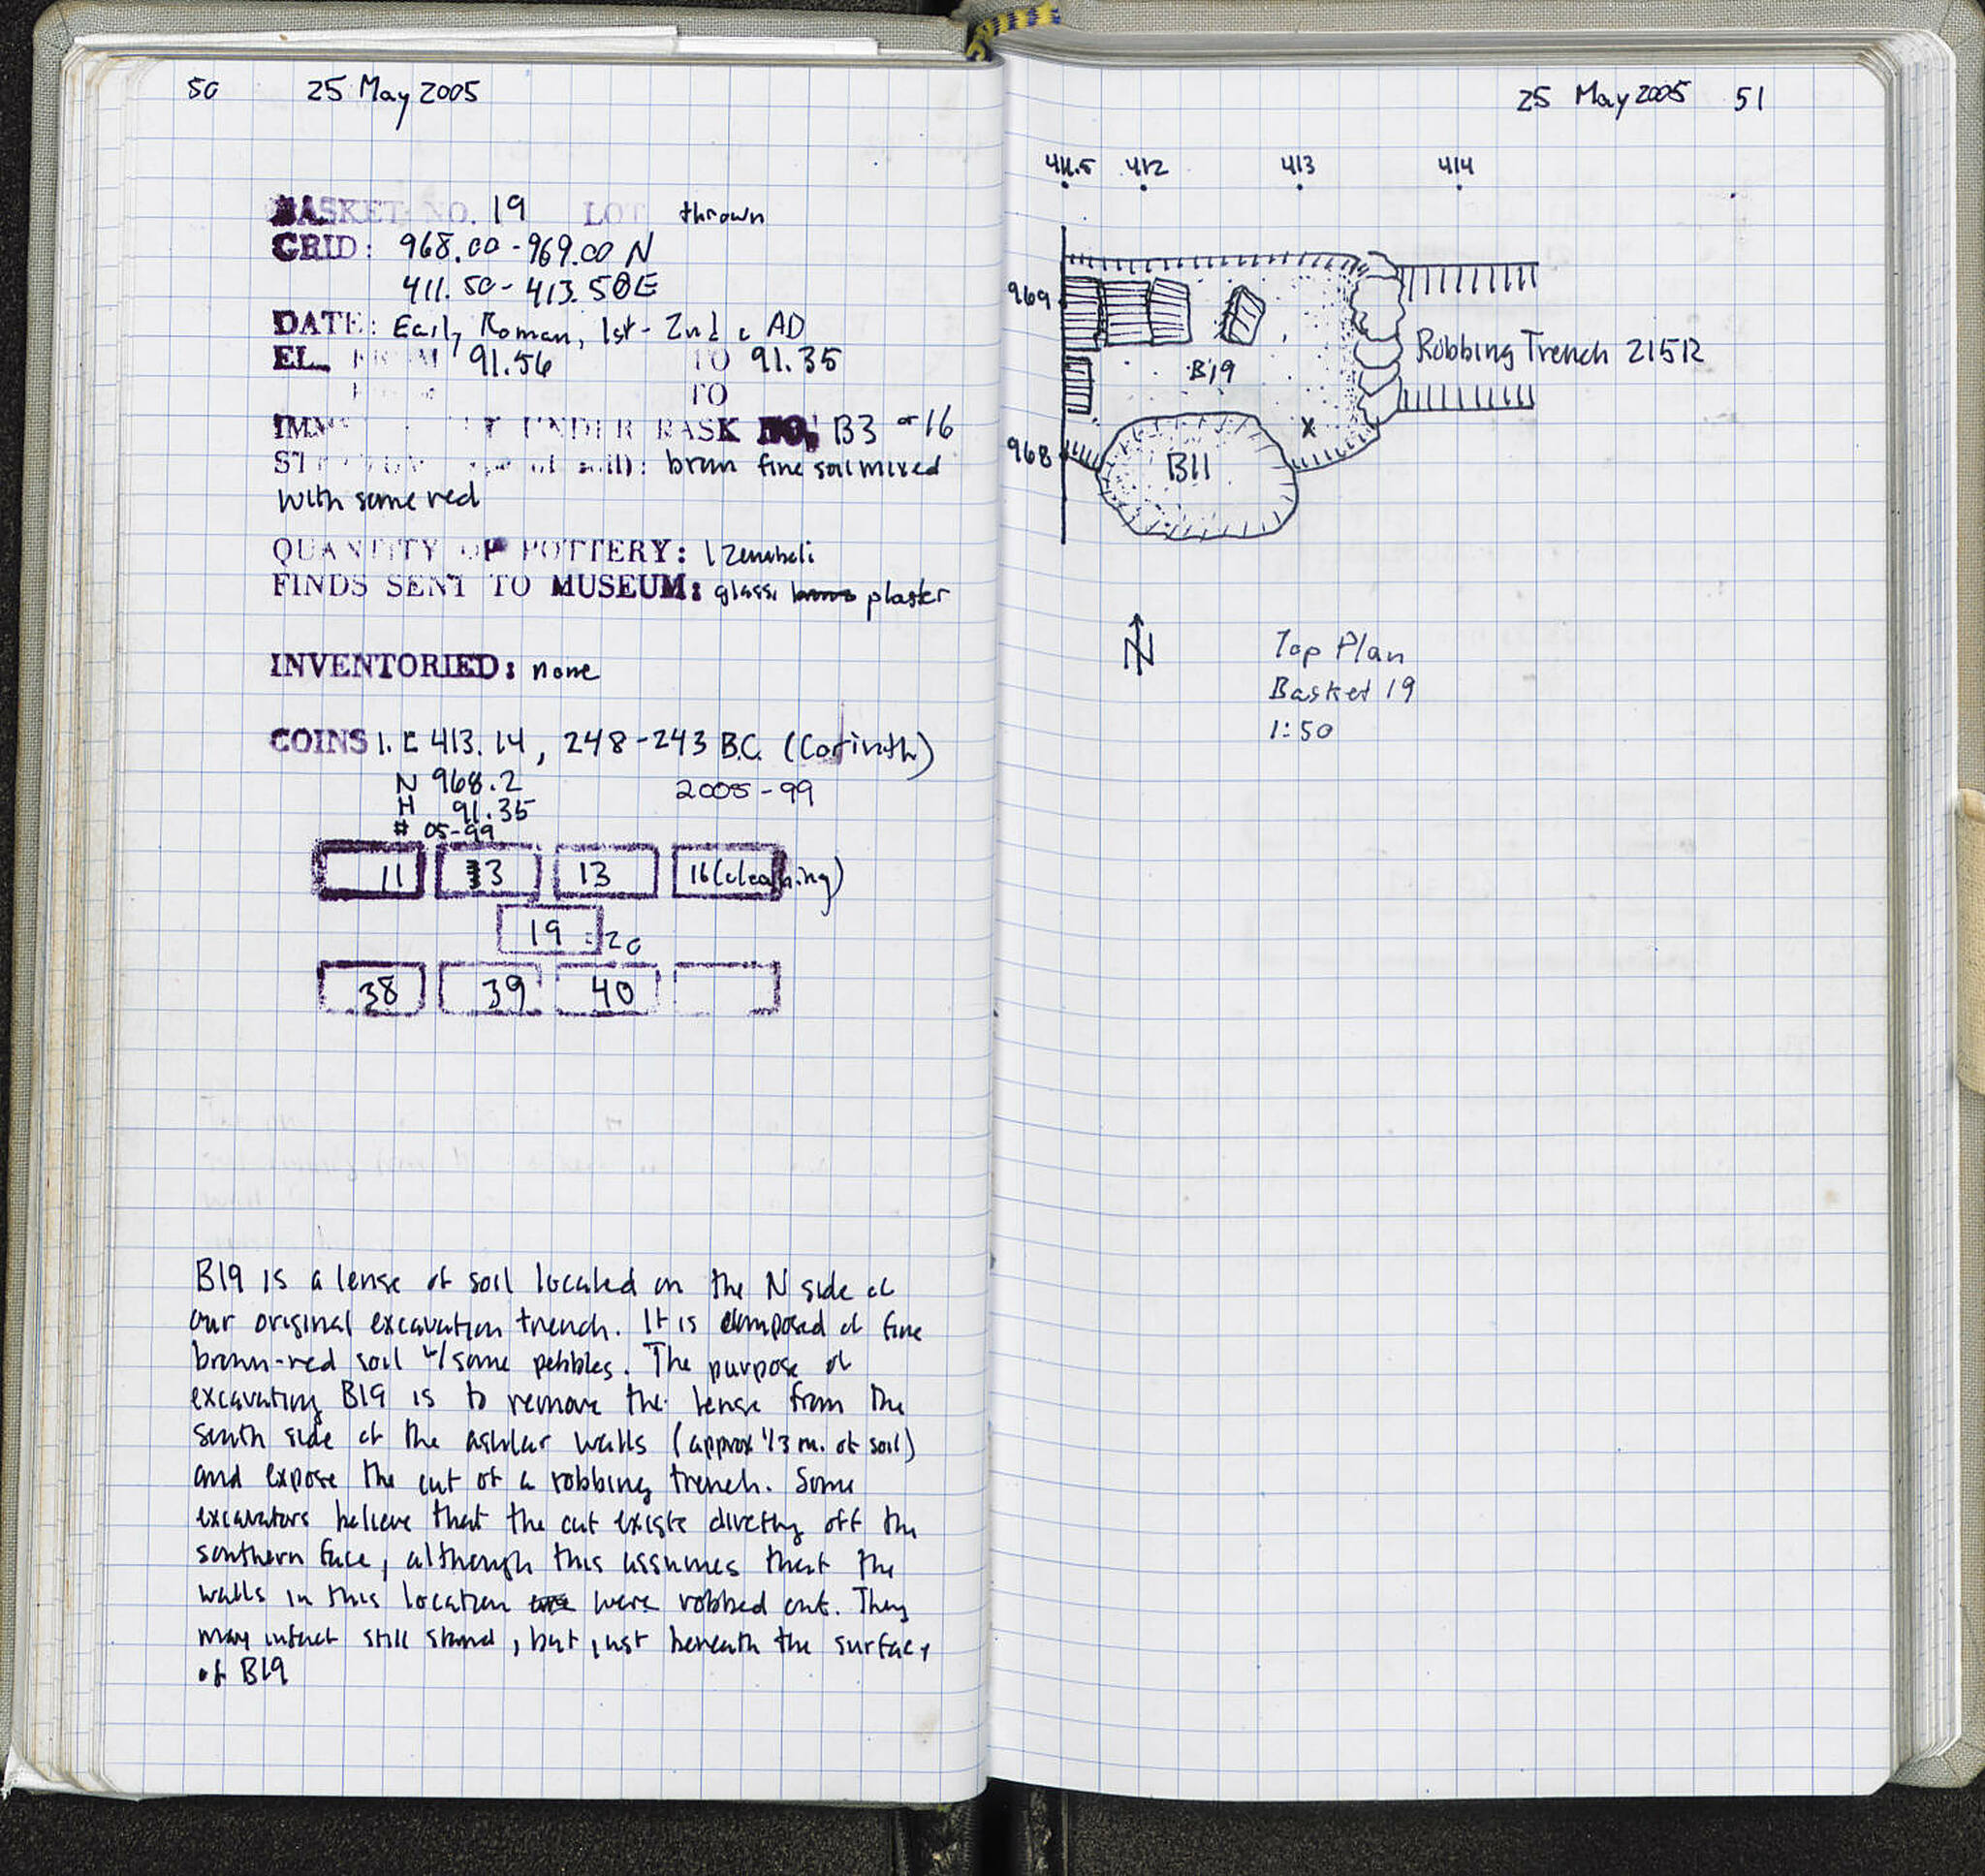 50 25 May 2005
BASKET NO. 19 LOT thrown
GRID: 968.00-969.00 N
411.50-413.50 E
DATE: Early Roman, 1st-2nd c AD
EL. FROM 91.56 TO 91.35
TO
UNDER BASK NO. B3 16
soil): brown fine soil mixed
with some red
QUANTITY OF POTTERY: 1 Zembeli
FINDS SENT TO MUSEUM: glass, plaster
INVENTORIED: none
COINS 1. E 413.14, 248-243 B.C. (Corinth)
N 968.2 2005-99
H 91.35
# 05-99
11 3 13 16 (cleaning)
19 20
38 39 40
B19 is a lense of soil located on the N side of
our original excavation trench. It is composed of fine
brown-red soil w/ some pebbles. The purpose of
excavating B19 is to remove the lense from the
south side of the ashlar walls (approx 1/3 m. of soil)
and expose the cut of a robbing trench. Some
excavators believe that the cut exists directly off the
southern face, although this assumes that the
walls in this location were robbed out. They
may infact still stand, but just beneath the surface
of B19
25 May 2005 51
411.5 412 413 414
969
Robbing Trench 21512
B19
968
X
B11
N
Top Plan
Basket 19
1:50